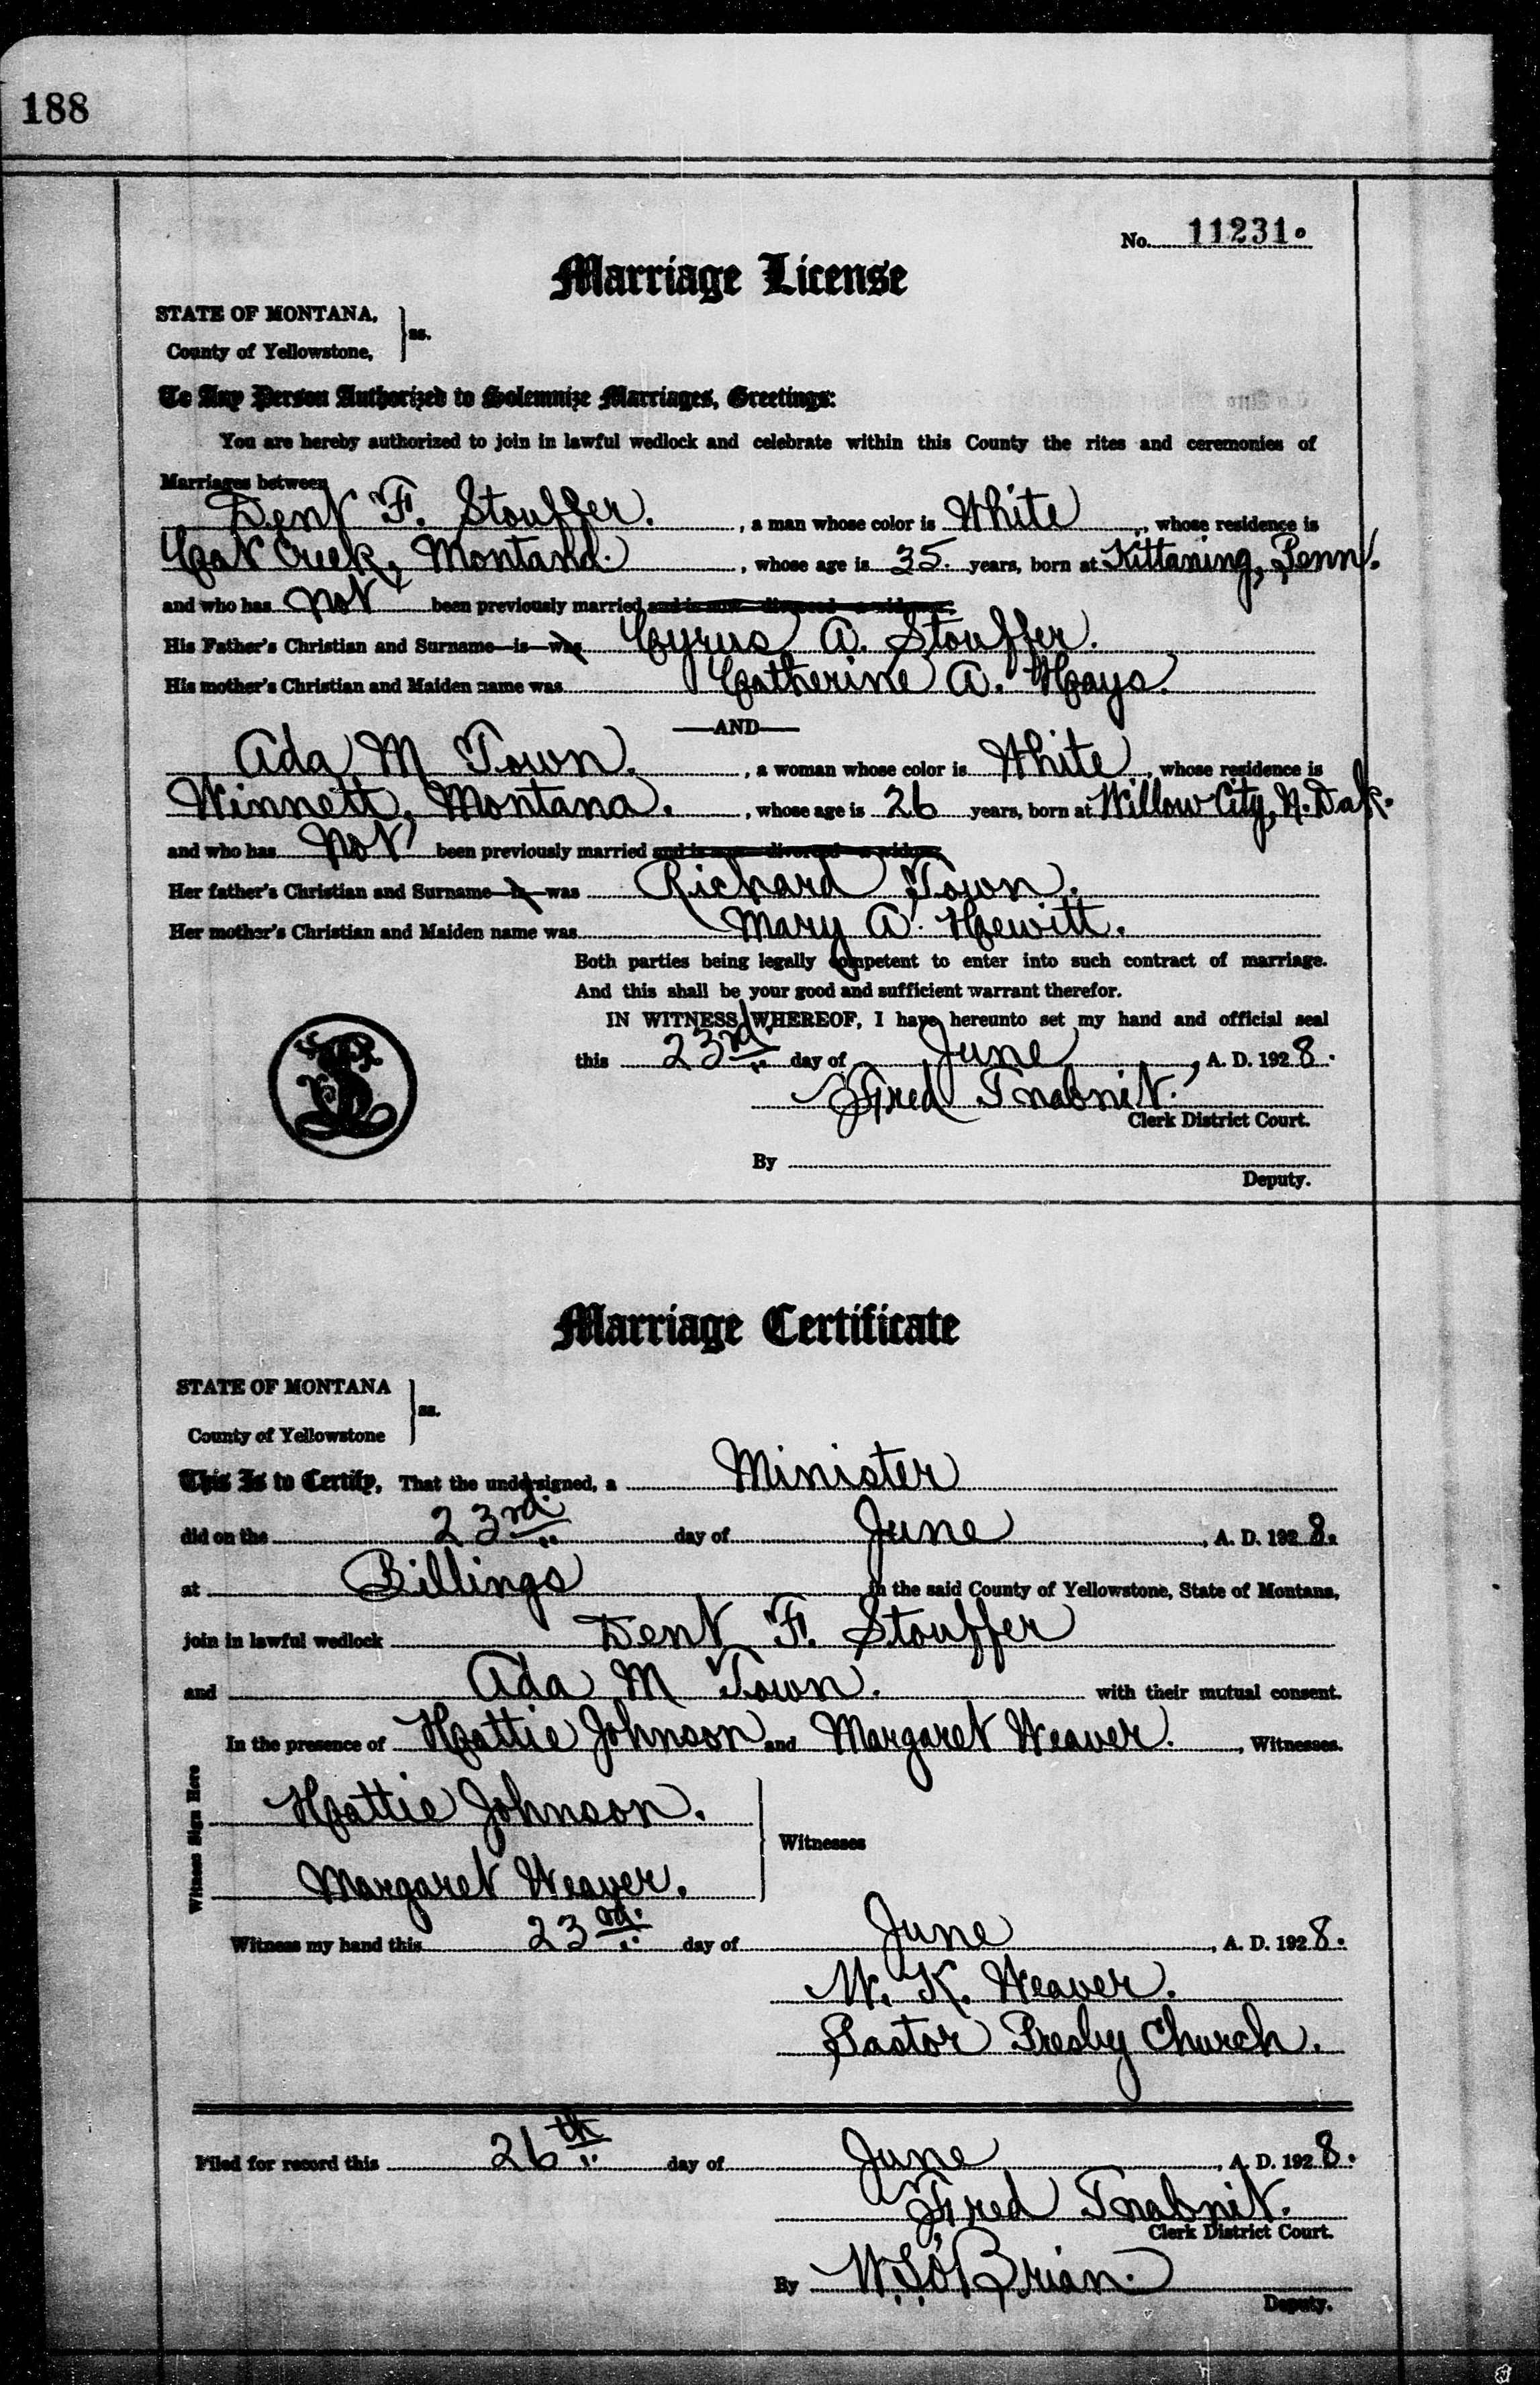 188
No. 11231.
Marriage License
STATE OF MONTANA,
County of Yellowstone, } ss.
To Any Person Authorized to Solemnize Marriages, Greetings:
You are hereby authorized to join in lawful wedlock and celebrate within this County the rites and ceremonies of
Marriages between
Dent F. Stouffer. , a man whose color is White , whose residence is
Cat Creek, Montana. , whose age is 35. years, born at Kittaning, Penn.
and who has not been previously married and is now divorced a widower.
His Father's Christian and Surname—is—was Cyrus A. Stouffer.
His mother's Christian and Maiden name was Catherine A. Hays.
—AND—
Ada M Town. , a woman whose color is White , whose residence is
Winnett, Montana. , whose age is 26 years, born at Willow City, N. Dak.
and who has not been previously married and is now divorced a widow
Her father's Christian and Surname—is—was Richard Town.
Her mother's Christian and Maiden name was Mary A. Hewitt.
Both parties being legally competent to enter into such contract of marriage.
And this shall be your good and sufficient warrant therefor.
IN WITNESS WHEREOF, I have hereunto set my hand and official seal
this 23rd day of June , A. D. 1928.
Fred Inabnit.
Clerk District Court.
By
Deputy.
Marriage Certificate
STATE OF MONTANA
County of Yellowstone } ss.
This Is to Certify, That the undersigned, a Minister
did on the 23rd. day of June , A. D. 1928.
at Billings in the said County of Yellowstone, State of Montana,
join in lawful wedlock Dent F. Stouffer
and Ada M Town. with their mutual consent.
In the presence of Hattie Johnson and Margaret Weaver. , Witnesses.
Witness Sign Here
Hattie Johnson.
Witnesses
Margaret Weaver.
Witness my hand this 23rd. day of June , A. D. 1928.
W. K. Weaver.
Pastor Presby Church.
Filed for record this 26th day of June , A. D. 1928.
Fred Inabnit.
Clerk District Court.
By W. S. O'Brian.
Deputy.